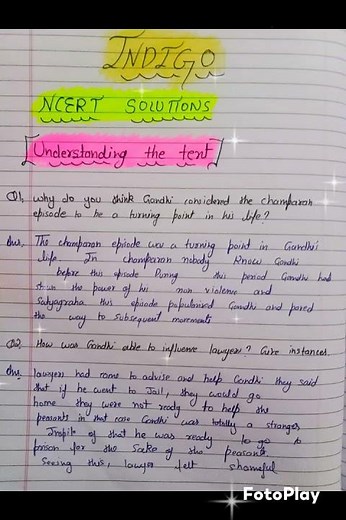 INDIGO
NCERT SOLUTIONS
Understanding the text
Q1. Why do you think Gandhi considered the champaran
episode to be a turning point in his life?
Ans. The champaran episode was a turning point in Gandhi
life. In champaran nobody know Gandhi
before this episode During this period Gandhi had
the power of his non violence and
Satyagraha this episode popularised Gandhi and paved
the way to subsequent movements
Q2. How was Gandhi able to influence lawyers? Give instances.
Ans. lawyers had come to advise and help Gandhi they said
that if he went to Jail, they would go
home they were not ready to help the
peasants in that case Gandhi was totally a stranger
Inspite of that he was ready to go to
prison for the sake of the peasants.
Seeing this, lawyer felt shameful
FotoPlay